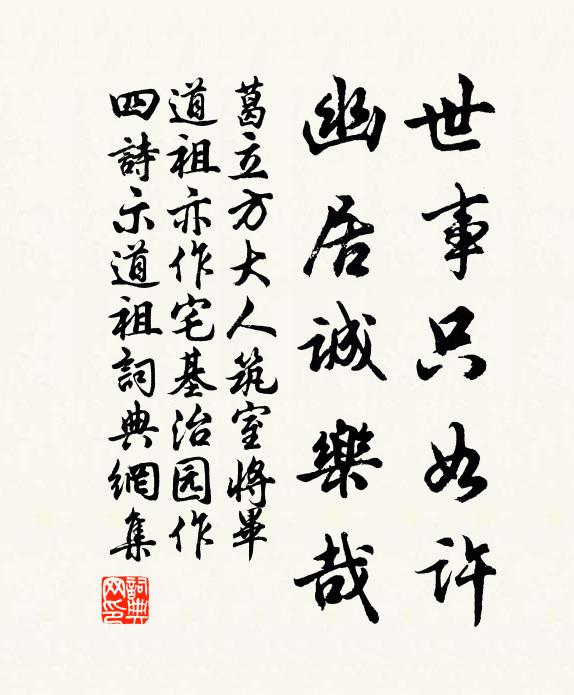 世事只如許
幽居誠樂哉
葛立方大人筑室將畢
道祖亦作宅基治园作
四詩示道祖詞典網集
詞典网印